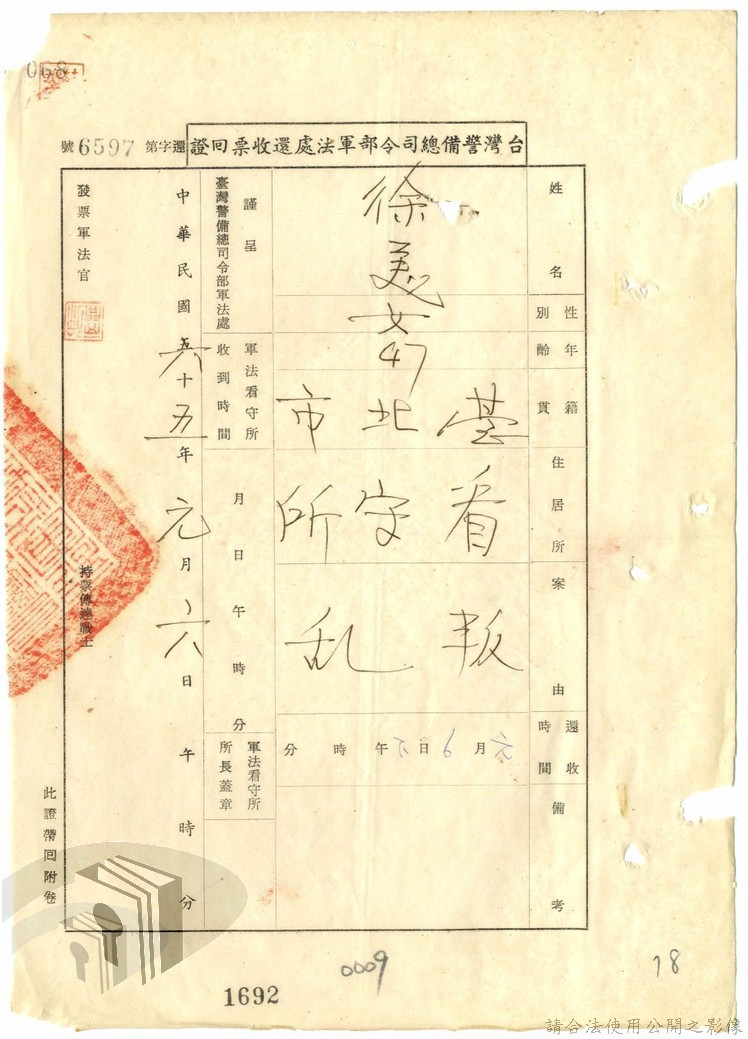 068
台灣警備總司令部軍法處還收票回證
還字第6597號
姓名
徐美
性別
女
年齡
47
籍貫
臺北市
住居所
看守所
案由
叛乱
還收時間
元月6日下午 時 分
備考
謹呈
臺灣警備總司令部軍法處
軍法看守所收到時間
月 日 午 時 分
軍法看守所所長蓋章
中華民國六十五年元月六日 午 時 分
發票軍法官
持票傳達戰士
此證帶回附卷
1692
0009
78
請合法使用公開之影像